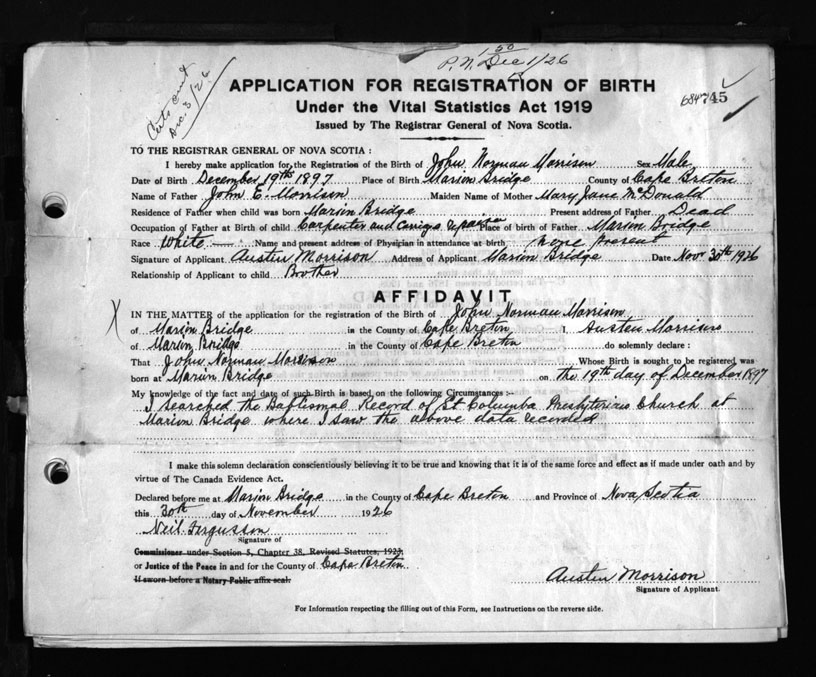 1 50
P.N. Dec 1/26
Dec. 3/26
APPLICATION FOR REGISTRATION OF BIRTH
Under the Vital Statistics Act 1919
Issued by The Registrar General of Nova Scotia.
745
TO THE REGISTRAR GENERAL OF NOVA SCOTIA:
I hereby make application for the Registration of the Birth of John Norman Morrison Sex Male
Date of Birth December 19th 1897 Place of Birth Marion Bridge County of Cape Breton
Name of Father John E. Morrison Maiden Name of Mother Mary Jane McDonald
Residence of Father when child was born Marion Bridge Present address of Father Dead
Occupation of Father at Birth of child Carpenter and Place of birth of Father Marion Bridge
Race White Name and present address of Physician in attendance at birth none present
Signature of Applicant Austen Morrison Address of Applicant Marion Bridge Date Nov 30th 1926
Relationship of Applicant to child Brother
AFFIDAVIT
X
IN THE MATTER of the application for the registration of the Birth of John Norman Morrison
of Marion Bridge in the County of Cape Breton, I, Austen Morrison
of Marion Bridge in the County of Cape Breton do solemnly declare:
That John Norman Morrison Whose Birth is sought to be registered was
born at Marion Bridge on the 19th day of December 1897
My knowledge of the fact and date of such Birth is based on the following Circumstances:-
I searched the Baptismal Record of St Columba Presbyterian Church at
Marion Bridge where I saw the above data recorded
I make this solemn declaration conscientiously believing it to be true and knowing that it is of the same force and effect as if made under oath and by
virtue of The Canada Evidence Act.
Declared before me at Marion Bridge in the County of Cape Breton and Province of Nova Scotia
this 30th day of November 1926
Neil Fergusson
Signature of
Commissioner under Section 5, Chapter 38, Revised Statutes, 1923.
or Justice of the Peace in and for the County of Cape Breton
If sworn before a Notary Public affix seal.
Austen Morrison
Signature of Applicant.
For Information respecting the filling out of this Form, see Instructions on the reverse side.